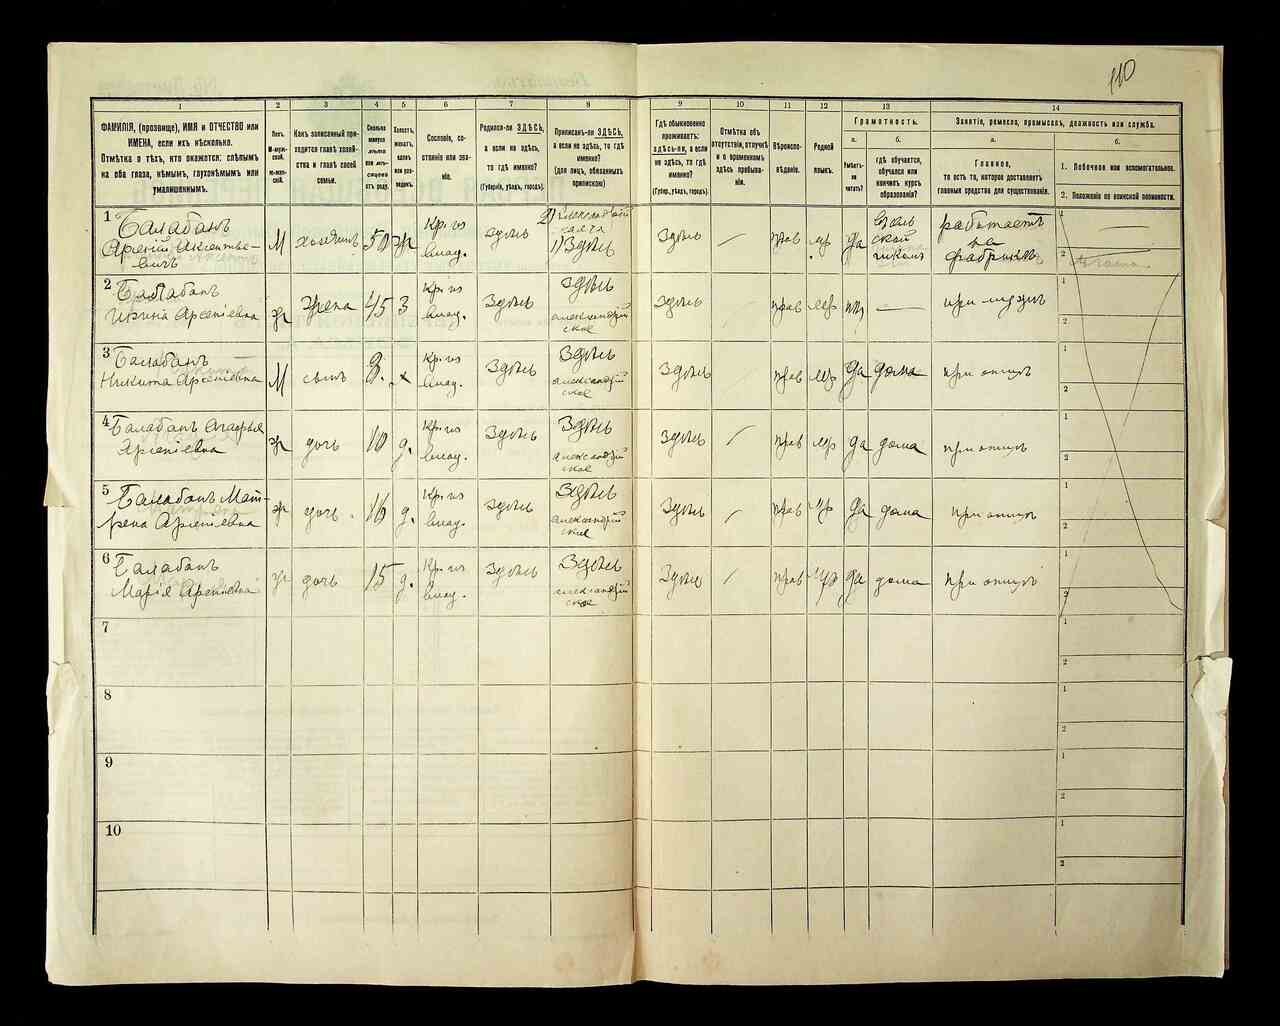 110
1
2
3
4
5
6
7
8
9
10
11
12
13
14
ФАМИЛІЯ, (прозвище), ИМЯ и ОТЧЕСТВО или
ИМЕНА, если ихъ нѣсколько.
Отмѣтка о тѣхъ, кто окажется: слѣпымъ
на оба глаза, нѣмымъ, глухонѣмымъ или
умалишеннымъ.
Полъ.
М-муж-
ской.
Ж-жен-
скій.
Какъ записанный при-
ходится главѣ хозяй-
ства и главѣ своей
семьи.
Сколько
минуло
лѣтъ
или мѣ-
сяцевъ
отъ роду.
Холостъ,
женатъ,
вдовъ
или раз-
веденъ.
Сословіе, со-
стояніе или зва-
ніе.
Родился-ли ЗДѢСЬ,
а если не здѣсь,
то гдѣ именно?
(Губернія, уѣздъ, городъ).
Приписанъ-ли ЗДѢСЬ,
а если не здѣсь, то гдѣ
именно?
(для лицъ, обязанныхъ
припискою)
Гдѣ обыкновенно
проживаетъ:
здѣсь-ли, а если
не здѣсь, то гдѣ
именно?
(Губер., уѣздъ, городъ).
Отмѣтка объ
отсутствіи, отлучкѣ
и о временномъ
здѣсь пребыва-
ніи.
Вѣроиспо-
вѣданіе.
Родной
языкъ.
Грамотность.
а.
Умѣетъ-
ли
читать?
б.
гдѣ обучается,
обучался или
кончилъ курсъ
образованія?
Занятіе, ремесло, промыселъ, должность или служба.
а.
Главное,
то есть то, которое доставляетъ
главныя средства для существованія.
б.
1. Побочное или вспомогательное.
2. Положеніе по воинской повинности.
1
Балабанъ
Арсеній
вичъ
М
хозяинъ
50
ж
Кр. из
влад.
здѣсь
2)
1) Здѣсь
Здѣсь
прав
мр
да
Сель
ской
школѣ
работаетъ
на
фабрикѣ
1
2
2
Балабанъ
Ирина Арсеніевна
ж
жена
45
З
Кр. из
влад.
Здѣсь
Здѣсь
александрій
ское
Здѣсь
прав
мр
при мужѣ
1
2
3
Балабанъ
Никита Арсеніевна
М
сынъ
х
Кр. из
влад.
Здѣсь
Здѣсь
александрій
ское
Здѣсь
прав
мр
да
дома
при отцѣ
1
2
4
Балабанъ Агафья
Арсеніевна
ж
дочь
10
д.
Кр. из
влад.
Здѣсь
Здѣсь
александрій
ское
Здѣсь
прав
мр
да
дома
при отцѣ
1
2
5
Балабанъ Мат-
рена Арсеніевна
ж
дочь
16
д.
Кр. из
влад.
Здѣсь
Здѣсь
александрій
ское
Здѣсь
прав
мр
да
дома
при отцѣ
1
2
6
Балабанъ
Марія Арсеніевна
ж
дочь
15
д.
Кр. из
влад.
Здѣсь
Здѣсь
александрій
ское
Здѣсь
прав
мр
да
дома
при отцѣ
1
2
7
1
2
8
1
2
9
1
2
10
1
2